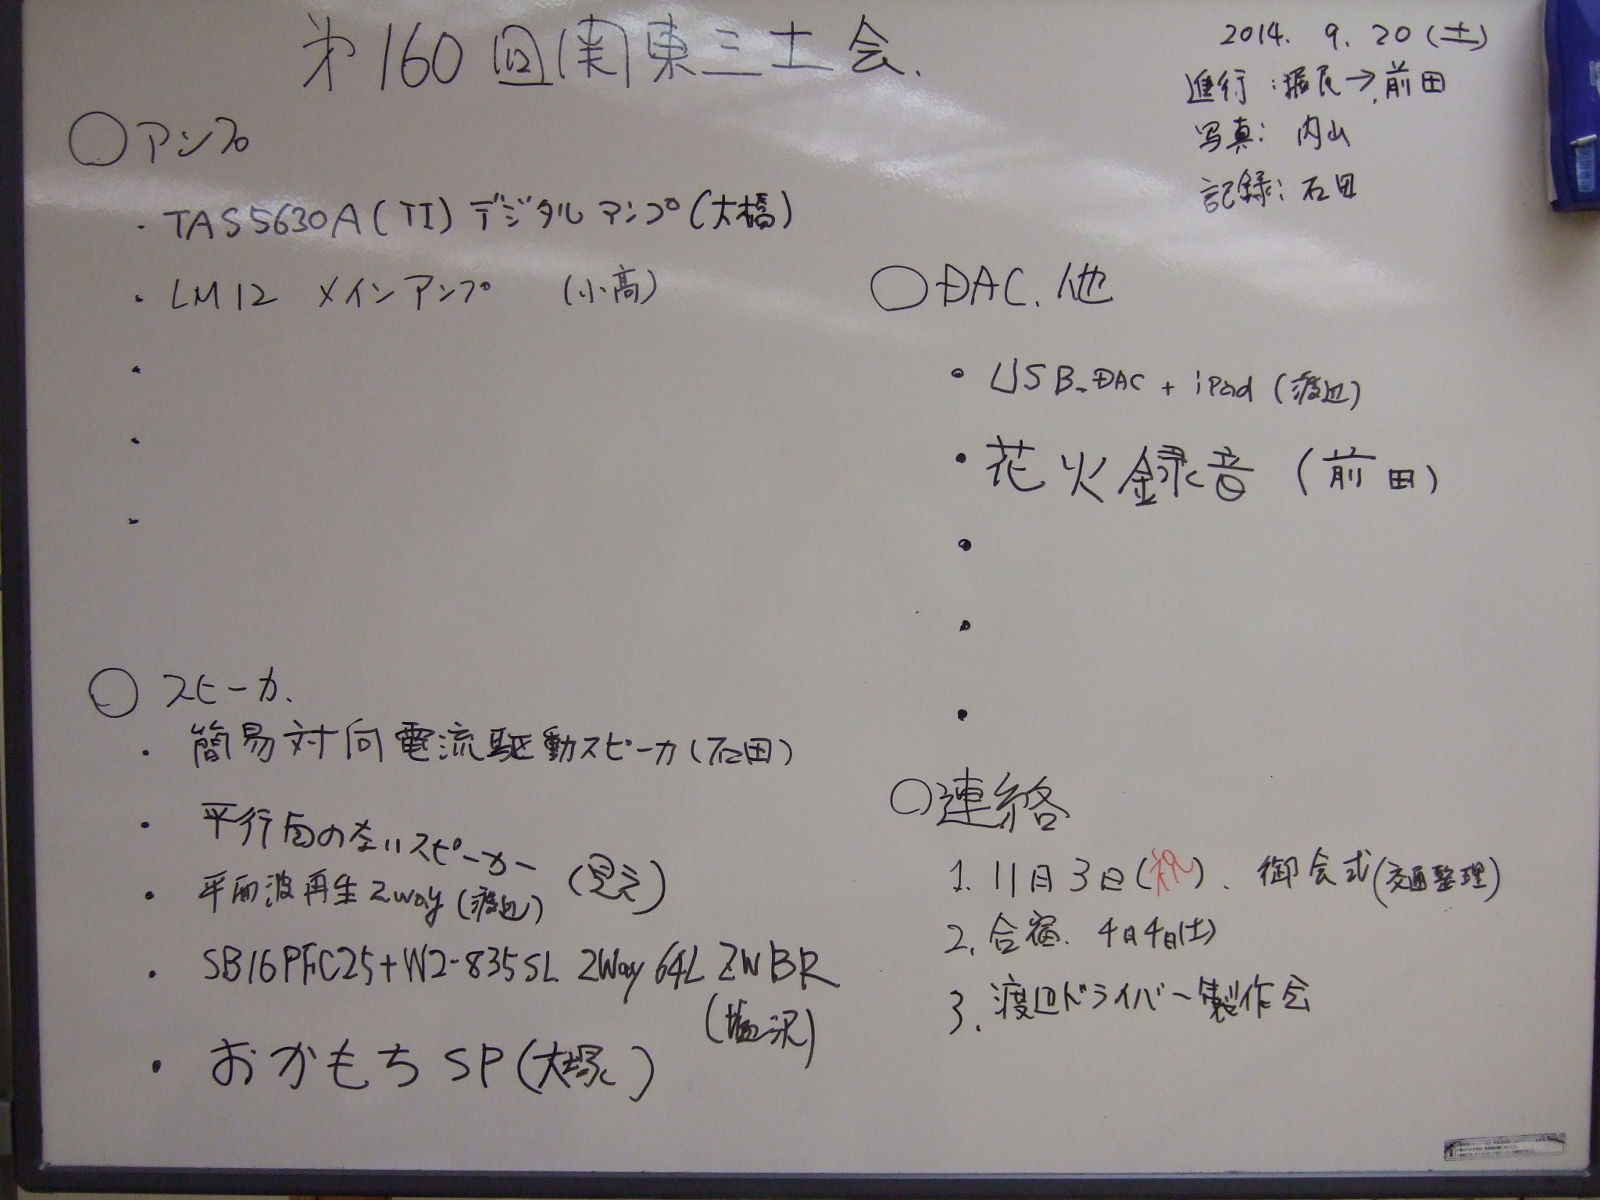 第160回関東三土会.
2014. 9. 20 (土)
進行:堀尾→前田
写真: 内山
記録: 石田
○アンプ
・TAS5630A(TI)デジタルアンプ(大橋)
・LM12 メインアンプ (小高)
○DAC.他
・USB-DAC + iPad (渡辺)
・花火録音 (前田)
○スピーカ.
・簡易対向電流駆動スピーカ(石田)
・平行面のないスピーカー
・平面波再生2way(渡辺)
・SB16PFC25+W2-835SL 2Way 64L ZWBR
(塩沢)
・おかもちSP(大塚)
○連絡
1. 11月3日(祝). 御会式(交通整理)
2. 合宿. 4月4日(土)
3. 渡辺ドライバー製作会